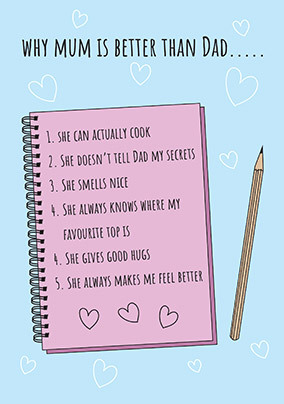 WHY MUM IS BETTER THAN DAD.....
1. SHE CAN ACTUALLY COOK
2. SHE DOESN'T TELL DAD MY SECRETS
3. SHE SMELLS NICE
4. SHE ALWAYS KNOWS WHERE MY
FAVOURITE TOP IS
4. SHE GIVES GOOD HUGS
5. SHE ALWAYS MAKES ME FEEL BETTER